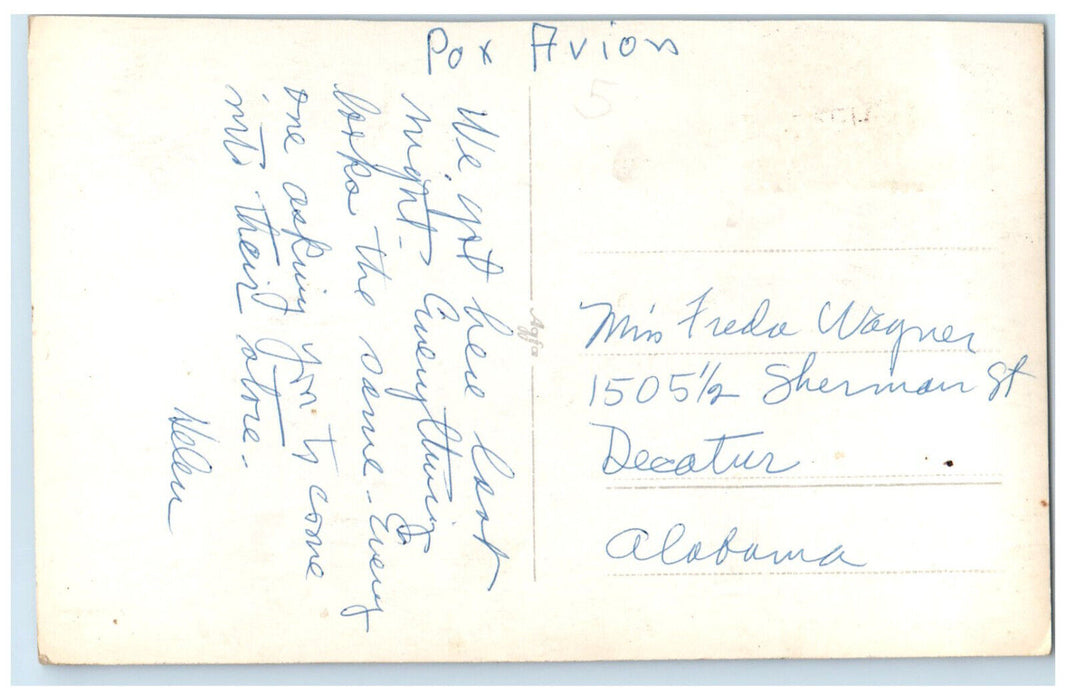 Pox Avion
5
We got here last
night - Everything
looks the same - Every
one asking you to come
into their store -
Helen
Agfa
Miss Freda Wagner
1505½ Sherman St
Decatur
Alabama